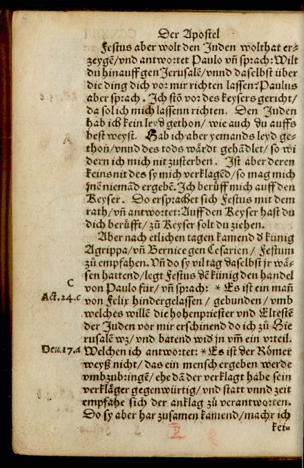 Der Apostel
Festus aber wolt den Juden wolthat er⸗
zeygē/vnd antwortet Paulo vñ sprach: Wilt
du hinauff gen Jerusalē/vnnd daselbst über
die ding dich vor mir richten lassen? Paulus
aber sprach. Ich stō vor des keysers gericht/
da sol ich mich lassenn richten. Den Juden
hab ich kein leyd gethon/wie auch du auffs
best weyst. Hab ich aber yemands leyd ge⸗
thon/vnnd des tods wärdt gehādlet/so wi
dern ich mich nit zusterben. Ist aber deren
keins nit des sy mich verklagēd/so mag mich
jnē niemād ergebē. Ich berüff mich auff den
Keyser. Do ersprachet sich Festus mit dem
rath/vñ antwortet: Auff den Keyser hast du
dich berüfft/zū Keyser solt du ziehen.
Aber nach etlichen tagen kamend d künig
Agrippa/vñ Bernice gen Cesarien/Festum
zu empfahen. Vñ do sy vil tag daselbst jr wä⸗
sen hattend/legt Festus dē künig den handel
C
von Paulo für/vñ sprach: * Es ist ein mañ
Act.24.c
von Felix hindergelassen/gebunden/vmb
welches willē die hohenpriester vnd Elteste
der Juden vor mir erschinend do ich zū Hie
rusalē wz/vnd batend wid jn vm̄ ein vrteil.
Deu.17.a
Welchen ich antwortet: * Es ist der Römer
weyß nicht/das ein mensch ergeben werde
vmbzubringē/ehe dā der verklagt habe sein
verkläger gegenwürtig/vnd statt vnnd zeit
empfahe sich der anklag zū verantworten.
Do sy aber har zusamen kamend/mach⸗ ich
kei⸗